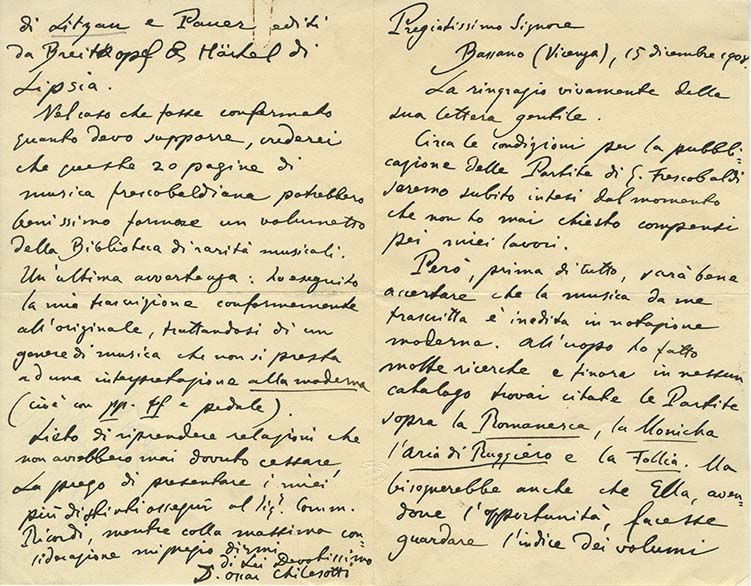 Pregiatissimo Signore
Bassano (Vicenza), 15 dicembre 1908.
La ringrazio vivamente della
sua lettera gentile.
Circa le condizioni per la pubbli=
cazione delle Partite di G. Frescobaldi
saremo subito intesi dal momento
che non ho mai chiesto compensi
pei miei lavori.
Però, prima di tutto, sarà bene
accertare che la musica da me
trascritta è inedita in notazione
moderna. All'uopo ho fatto
molte ricerche e finora in nessun
catalogo trovai citate le Partite
sopra la Romanesca, la Monicha
l'Aria di Ruggiero e la Follia. Ma
bisognerebbe anche che Ella, aven=
done l'opportunità, facesse
guardare l'indice dei volumi
di Litzau e Pauer editi
da Breitkopf & Härtel di
Lipsia.
Nel caso che fosse confermato
quanto devo supporre, crederei
che queste 20 pagine di
musica frescobaldiana potrebbero
benissimo formare un volumetto
della Biblioteca di rarità musicali.
Un'ultima avvertenza: ho eseguito
la mia trascrizione conformemente
all'originale, trattandosi di un
genere di musica che non si presta
ad una interpretazione alla moderna
(cioè con pp. ff e pedale).
Lieto di riprendere relazioni che
non avrebbero mai dovuto cessare,
La prego di presentare i miei
più distinti ossequi al Sig. Comm.
Ricordi, mentre colla massima con=
siderazione mi pregio dirmi
di Lei Devotissimo
D. Oscar Chilesotti